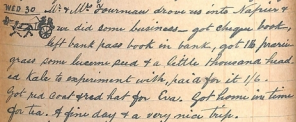 WED 30 Mr & Mrs Fourman drove us into Napier &
we did some business - got cheque book,
left bank pass book in bank, got 1 lb prairie
grass some lucerne seed & a little thousand head
ed kale to experiment with, paid for it 1/6.
Got red coat & red hat for Eva. Got home in time
for tea. A fine day & a very nice trip.